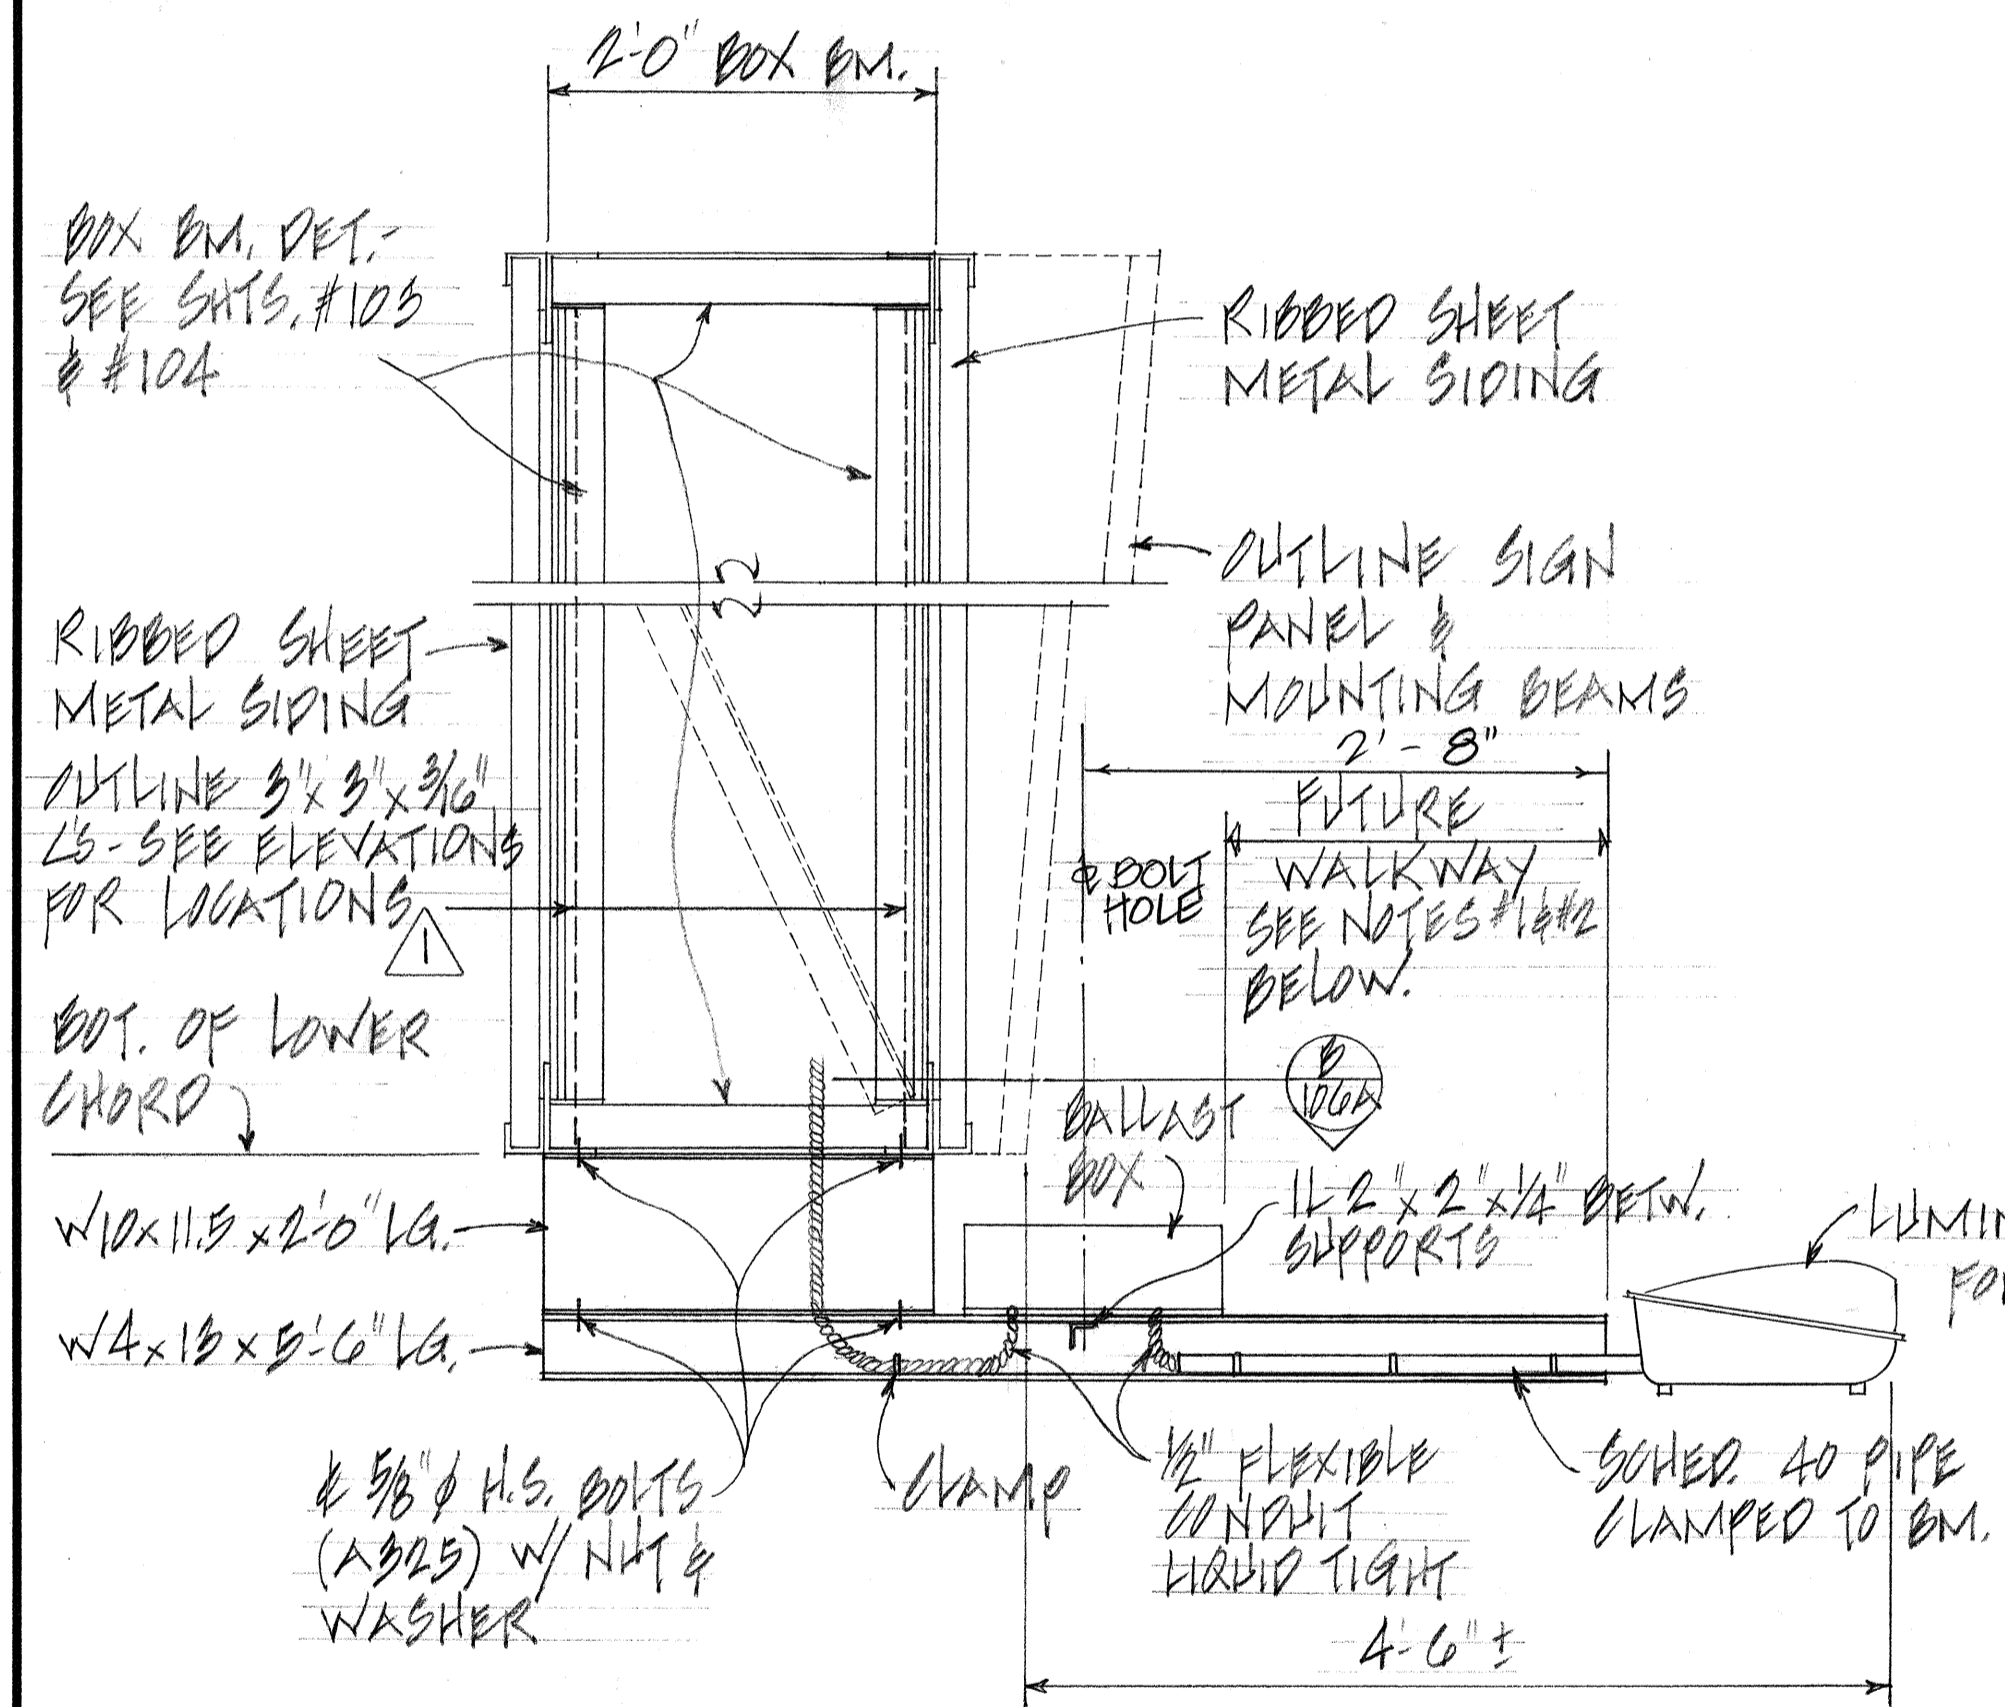 2'-0" BOX BM.
BOX BM. DET.-
SEE SHTS. #103
& #104
RIBBED SHEET
METAL SIDING
OUTLINE SIGN
PANEL &
MOUNTING BEAMS
RIBBED SHEET
METAL SIDING
OUTLINE 3"x 3"x 3/16"
L'S - SEE ELEVATIONS
FOR LOCATIONS
1
2'-8"
FUTURE
WALKWAY
SEE NOTES #1 & #2
BELOW.
℄ BOLT
HOLE
BOT. OF LOWER
CHORD
B
106A
BALLAST
BOX
1L 2"x 2"x 1/4" BETW.
SUPPORTS
W10x11.5 x 2'-0" LG.
W4x13 x 5'-6" LG.
℄ 5/8" ⌀ H.S. BOLTS
(A325) W/ NUT &
WASHER
CLAMP
1/2" FLEXIBLE
CONDUIT
LIQUID TIGHT
SCHED. 40 PIPE
CLAMPED TO BM.
4'-6" ±